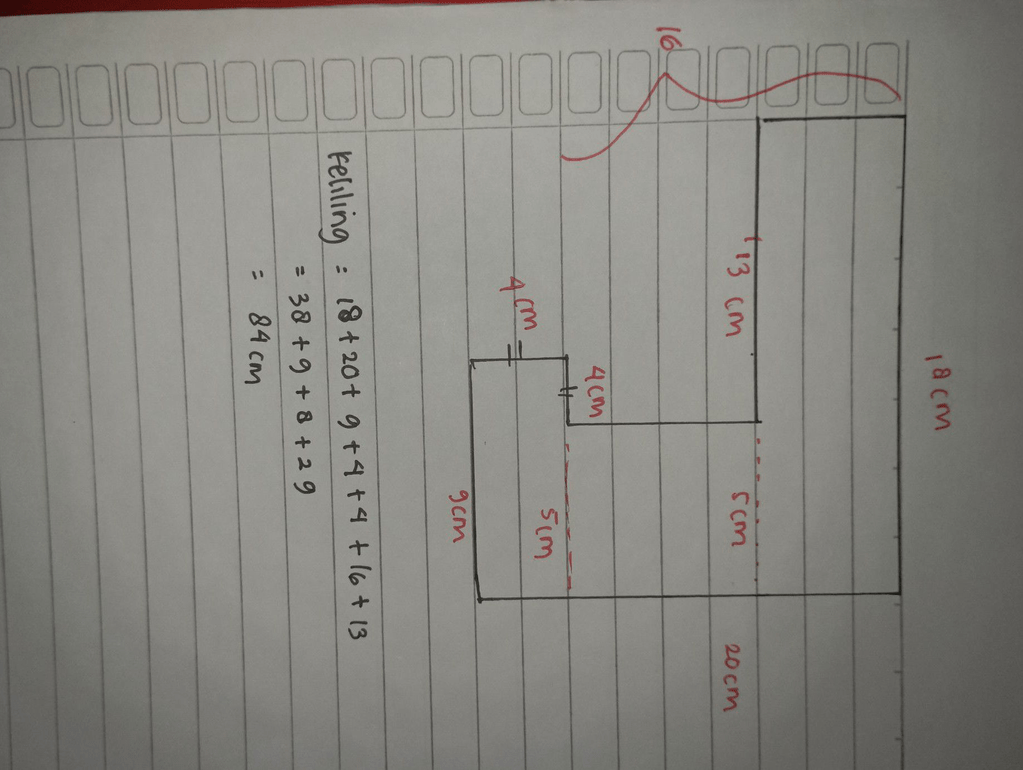 18 cm
16
13 cm
5cm
20cm
4cm
5cm
4cm
9cm
Keliling = 18 + 20 + 9 + 4 + 4 + 16 + 13
= 38 + 9 + 8 + 29
= 84 cm